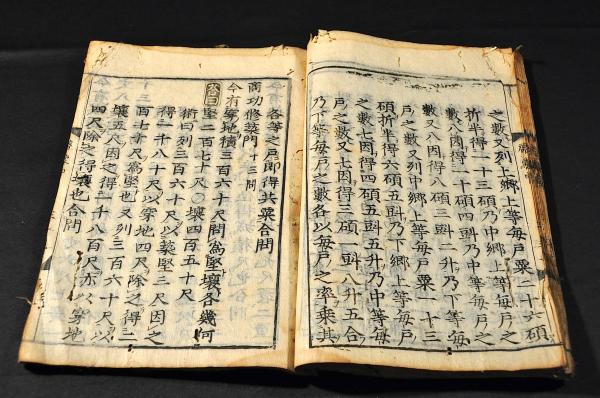 之數又列上鄉上等每戶粟二十六碩
折半得一十三碩乃中鄉上等每戶之
數八因得一十碩四㪷乃中等每戶之
數又八因得八碩三㪷二升乃下等每
戶之數又列中鄉上等每戶粟一十三
碩折半得六碩五㪷乃下鄉上等每戶
之數七因得四碩五㪷五升乃中等每
戶之數又七因得三碩一㪷八升五合
乃下等每戶之數各以每戶之率乘其
各等之戶即得共粟合問
商功修築門十三問
今有穿地積三百六十尺問爲堅壤各幾何
答曰堅二百七十尺○壤四百五十尺
術曰列三百六十尺以築堅三尺因之
得一千八十尺以穿地四尺除之得二
百七十尺爲堅也又列三百六十尺以
壤五尺因之得一千八百尺亦以穿地
四尺除之得壤也合問